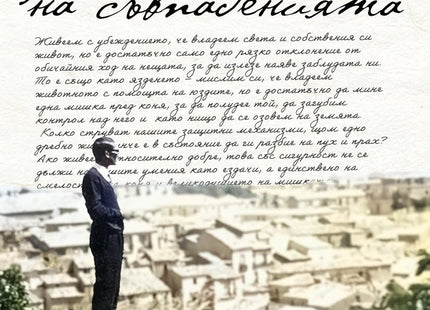 на съвпаденията
Живеем с убеждението, че владеем света и собствения си
живот, но е достатъчно само едно рязко отклонение от
обичайния ход на нещата, за да излезе наяве заблудата ни.
То е също като язденето – мислим си, че владеем
животното с помощта на юздите, но е достатъчно да мине
една мишка пред коня, за да полудее той, да загубим
контрол над него и като нищо да се озовем на земята.
Колко струват нашите защитни механизми, щом едно
дребно живо е в състояние да ги разбие на пух и прах?
Ако живеем относително добре, това със сигурност не се
дължи на умения като ездачи, а единствено на
смелостта на коня и великодушието на мишк